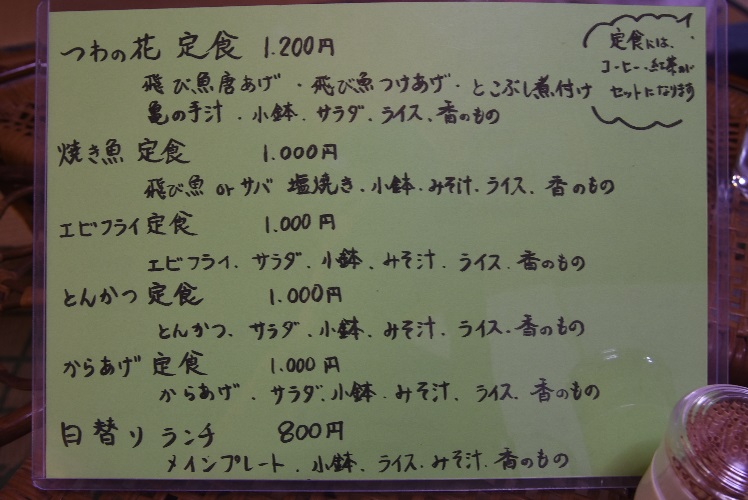 つわの花 定食 1.200円
定食には、
コーヒー、紅茶が
セットになります
飛び魚唐あげ・飛び魚つけあげ・とこぶし煮付け
亀の手汁・小鉢・サラダ、ライス、香のもの
焼き魚 定食 1.000円
飛び魚 or サバ 塩焼き・小鉢・みそ汁・ライス、香のもの
エビフライ 定食 1.000円
エビフライ、サラダ、小鉢、みそ汁・ライス・香のもの
とんかつ 定食 1.000円
とんかつ、サラダ、小鉢、みそ汁・ライス・香のもの
からあげ 定食 1.000円
からあげ・サラダ、小鉢・みそ汁、ライス、香のもの
日替り ランチ 800円
メインプレート・小鉢、ライス・みそ汁・香のもの